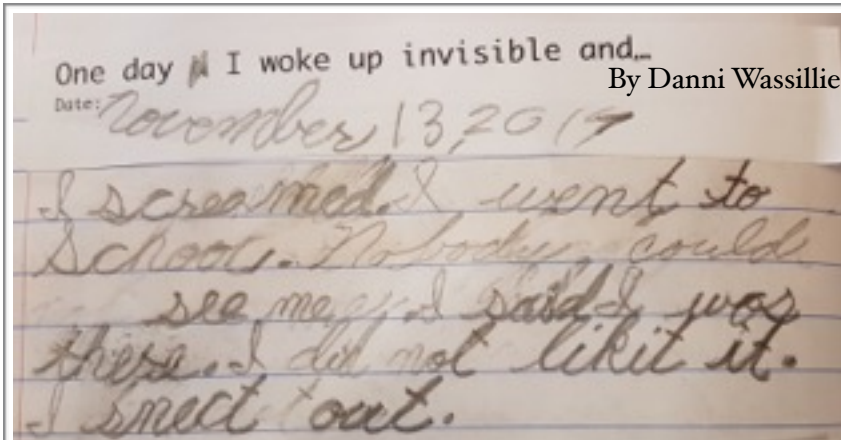 One day I woke up invisible and...
By Danni Wassillie
Date: November 13, 2019
I screamed. I went to
School. Nobody could
see me. I said I was
there. I did not likit it.
I snect out.